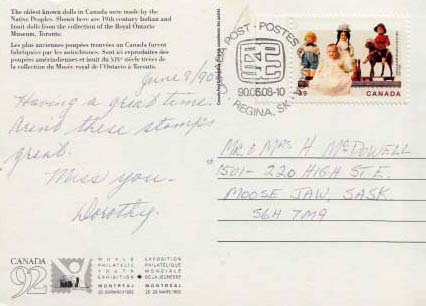 The oldest known dolls in Canada were made by the
Native Peoples. Shown here are 19th century Indian and
Inuit dolls from the collection of the Royal Ontario
Museum, Toronto.
Les plus anciennes poupées trouvées au Canada furent
fabriquées par les autochtones. Sont ici reproduites des
poupées amérindiennes et inuit du XIXe siècle tirées de
la collection du Musée royal de l'Ontario à Toronto.
June 8/90
Having a great time.
Aren't these stamps
great.
Miss you -
Dorothy.
CANADA POST - POSTES
90.06.08-10
REGINA, SK
39 CANADA
Mr & Mrs H McDowell
1501-220 HIGH ST. E.
MOOSE JAW, SASK.
S6H 7M9
CANADA
92
WORLD
PHILATELIC
YOUTH
EXHIBITION
MONTRÉAL
25-29 MARCH 1992
EXPOSITION
PHILATÉLIQUE
MONDIALE
DE LA JEUNESSE
MONTRÉAL
25-29 MARS 1992